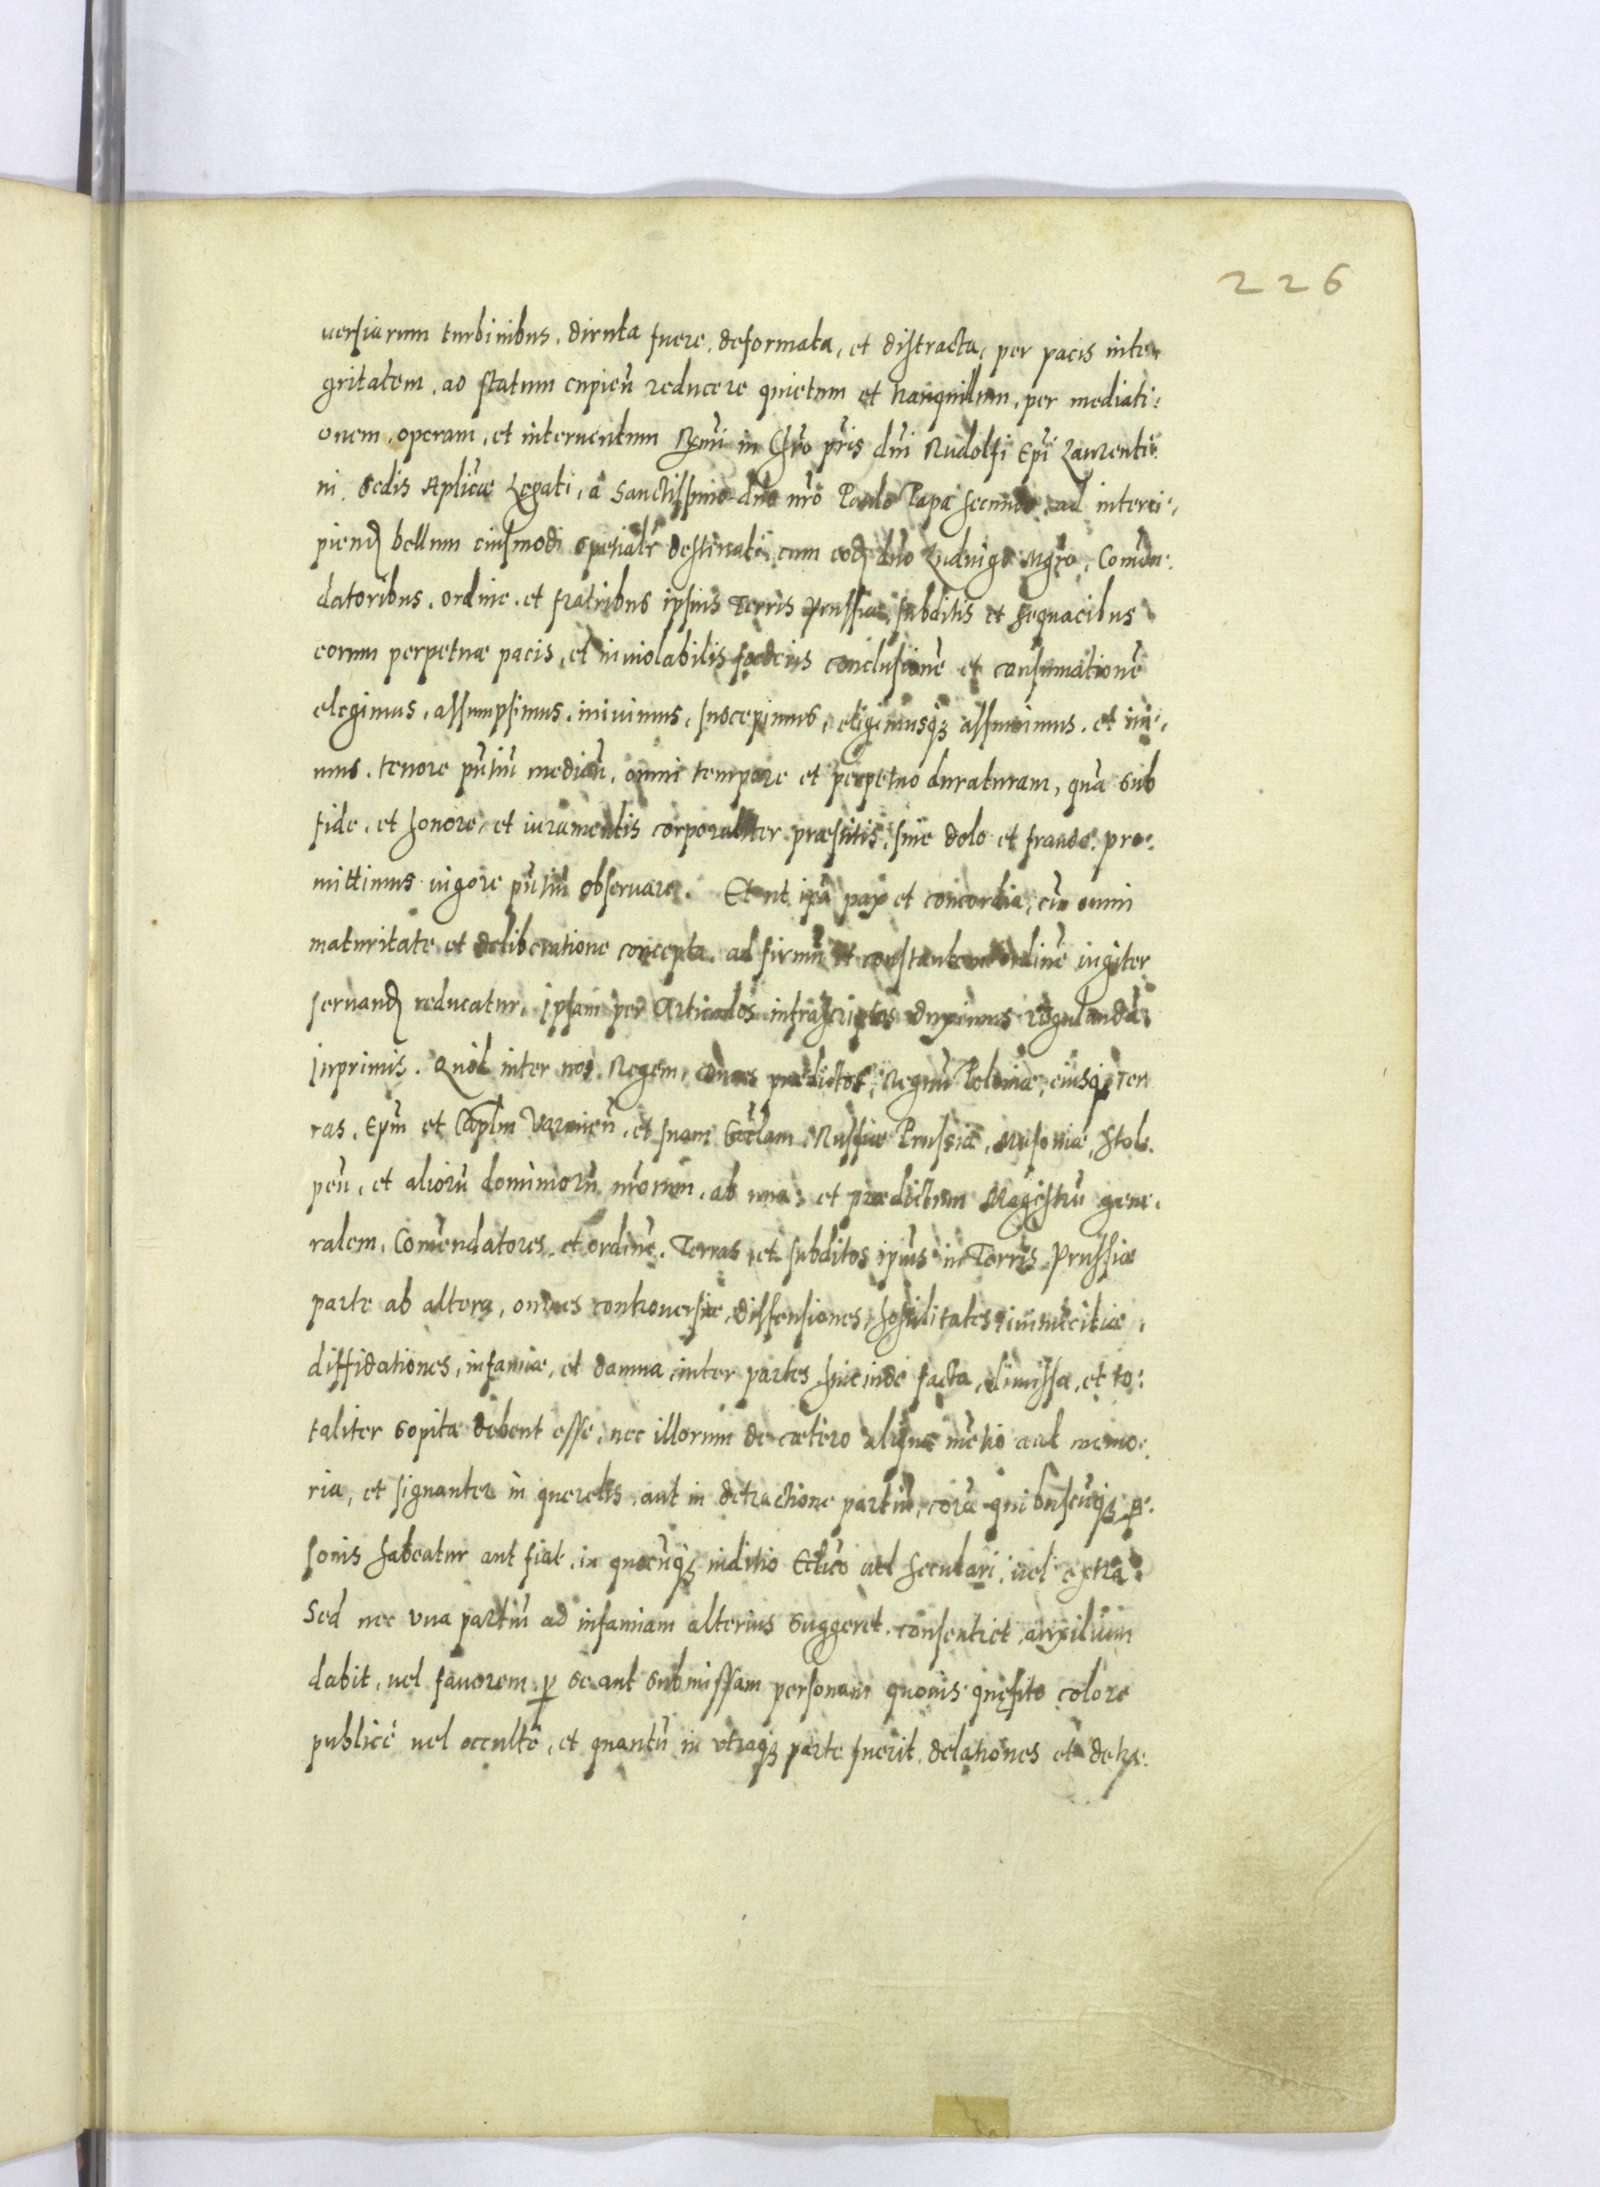 226
uersiarum turbinibus, diruta fuere, deformata, et distracta, per pacis inte-
gritatem, ad statum cupień reducere quietum et tranquillum, per mediati:
onem, operam, et interuentum Rmi in Chro pris dni Rudolfi Epi Lauenti:
ni. Sedis Aplicæ Legati, a Sanctissimo dno nro Paulo Papa secundo ad interci:
piend bellum eiusmodi spetialr destinati, cum eod dno Luduigo Mgro, Comen:
datoribus, ordine, et fratribus ipsius Terris Prussiæ, subditis et sequacibus
eorum perpetuæ pacis, et inuiolabilis fœderis conclusionē et consumationē
elegimus, assumpsimus, iniuimus, suscepimus, eligimusq; assumimus, et ini:
mus, tenore pntiū mediań, omni tempore et perpetuo duraturam, qua sub
fide, et honore, et iuramentis corporaliter præstitis, sine dolo et fraude, pro:
mittimus uigore pntiū obseruare. Et ut ipa pax et concordia, cū omni
maturitate et deliberatione concepta, ad firmū et constantem ordinē iugiter
seruand reducatur, ipsam per Articulos infrascriptos duximus regulandā,
Inprimis. Quod inter nos Regem, omnes prædictos, Regnū Poloniæ, eiusq; Ter
ras, Epm et Caplm Varmień, et suam Ecclam, Russiæ Prussiæ, Masouiæ, Stol-
peń, et aliorū dominiorū nrorum, ab una, et prædictum Magistrū gene-
ralem, Comendatores, et ordinē, Terras, et subditos ipius in Terris Prussiæ
parte ab altera, omnes controuersiæ, dissensiones, hostilitates, inimicitiæ,
diffidationes, infamiæ, et damna inter partes hinc inde facta, dimissa, et to:
taliter sopita debent esse, nec illorum de cætero aliqua mentio aut memo:
ria, et signanter in querelis, aut in detractione partiū, corā quibuscuq; per:
sonis habeatur aut fiat, in quocuq; iuditio Ecclico uel seculari, uel extra.
Sed nec vna partiū ad infamiam alterius suggeret, consentiet, auxilium
dabit, uel fauorem p se aut submissam personam quouis quęsito colore
publicè uel occultè, et quantū in vtraq; parte fuerit, delationes et detra: